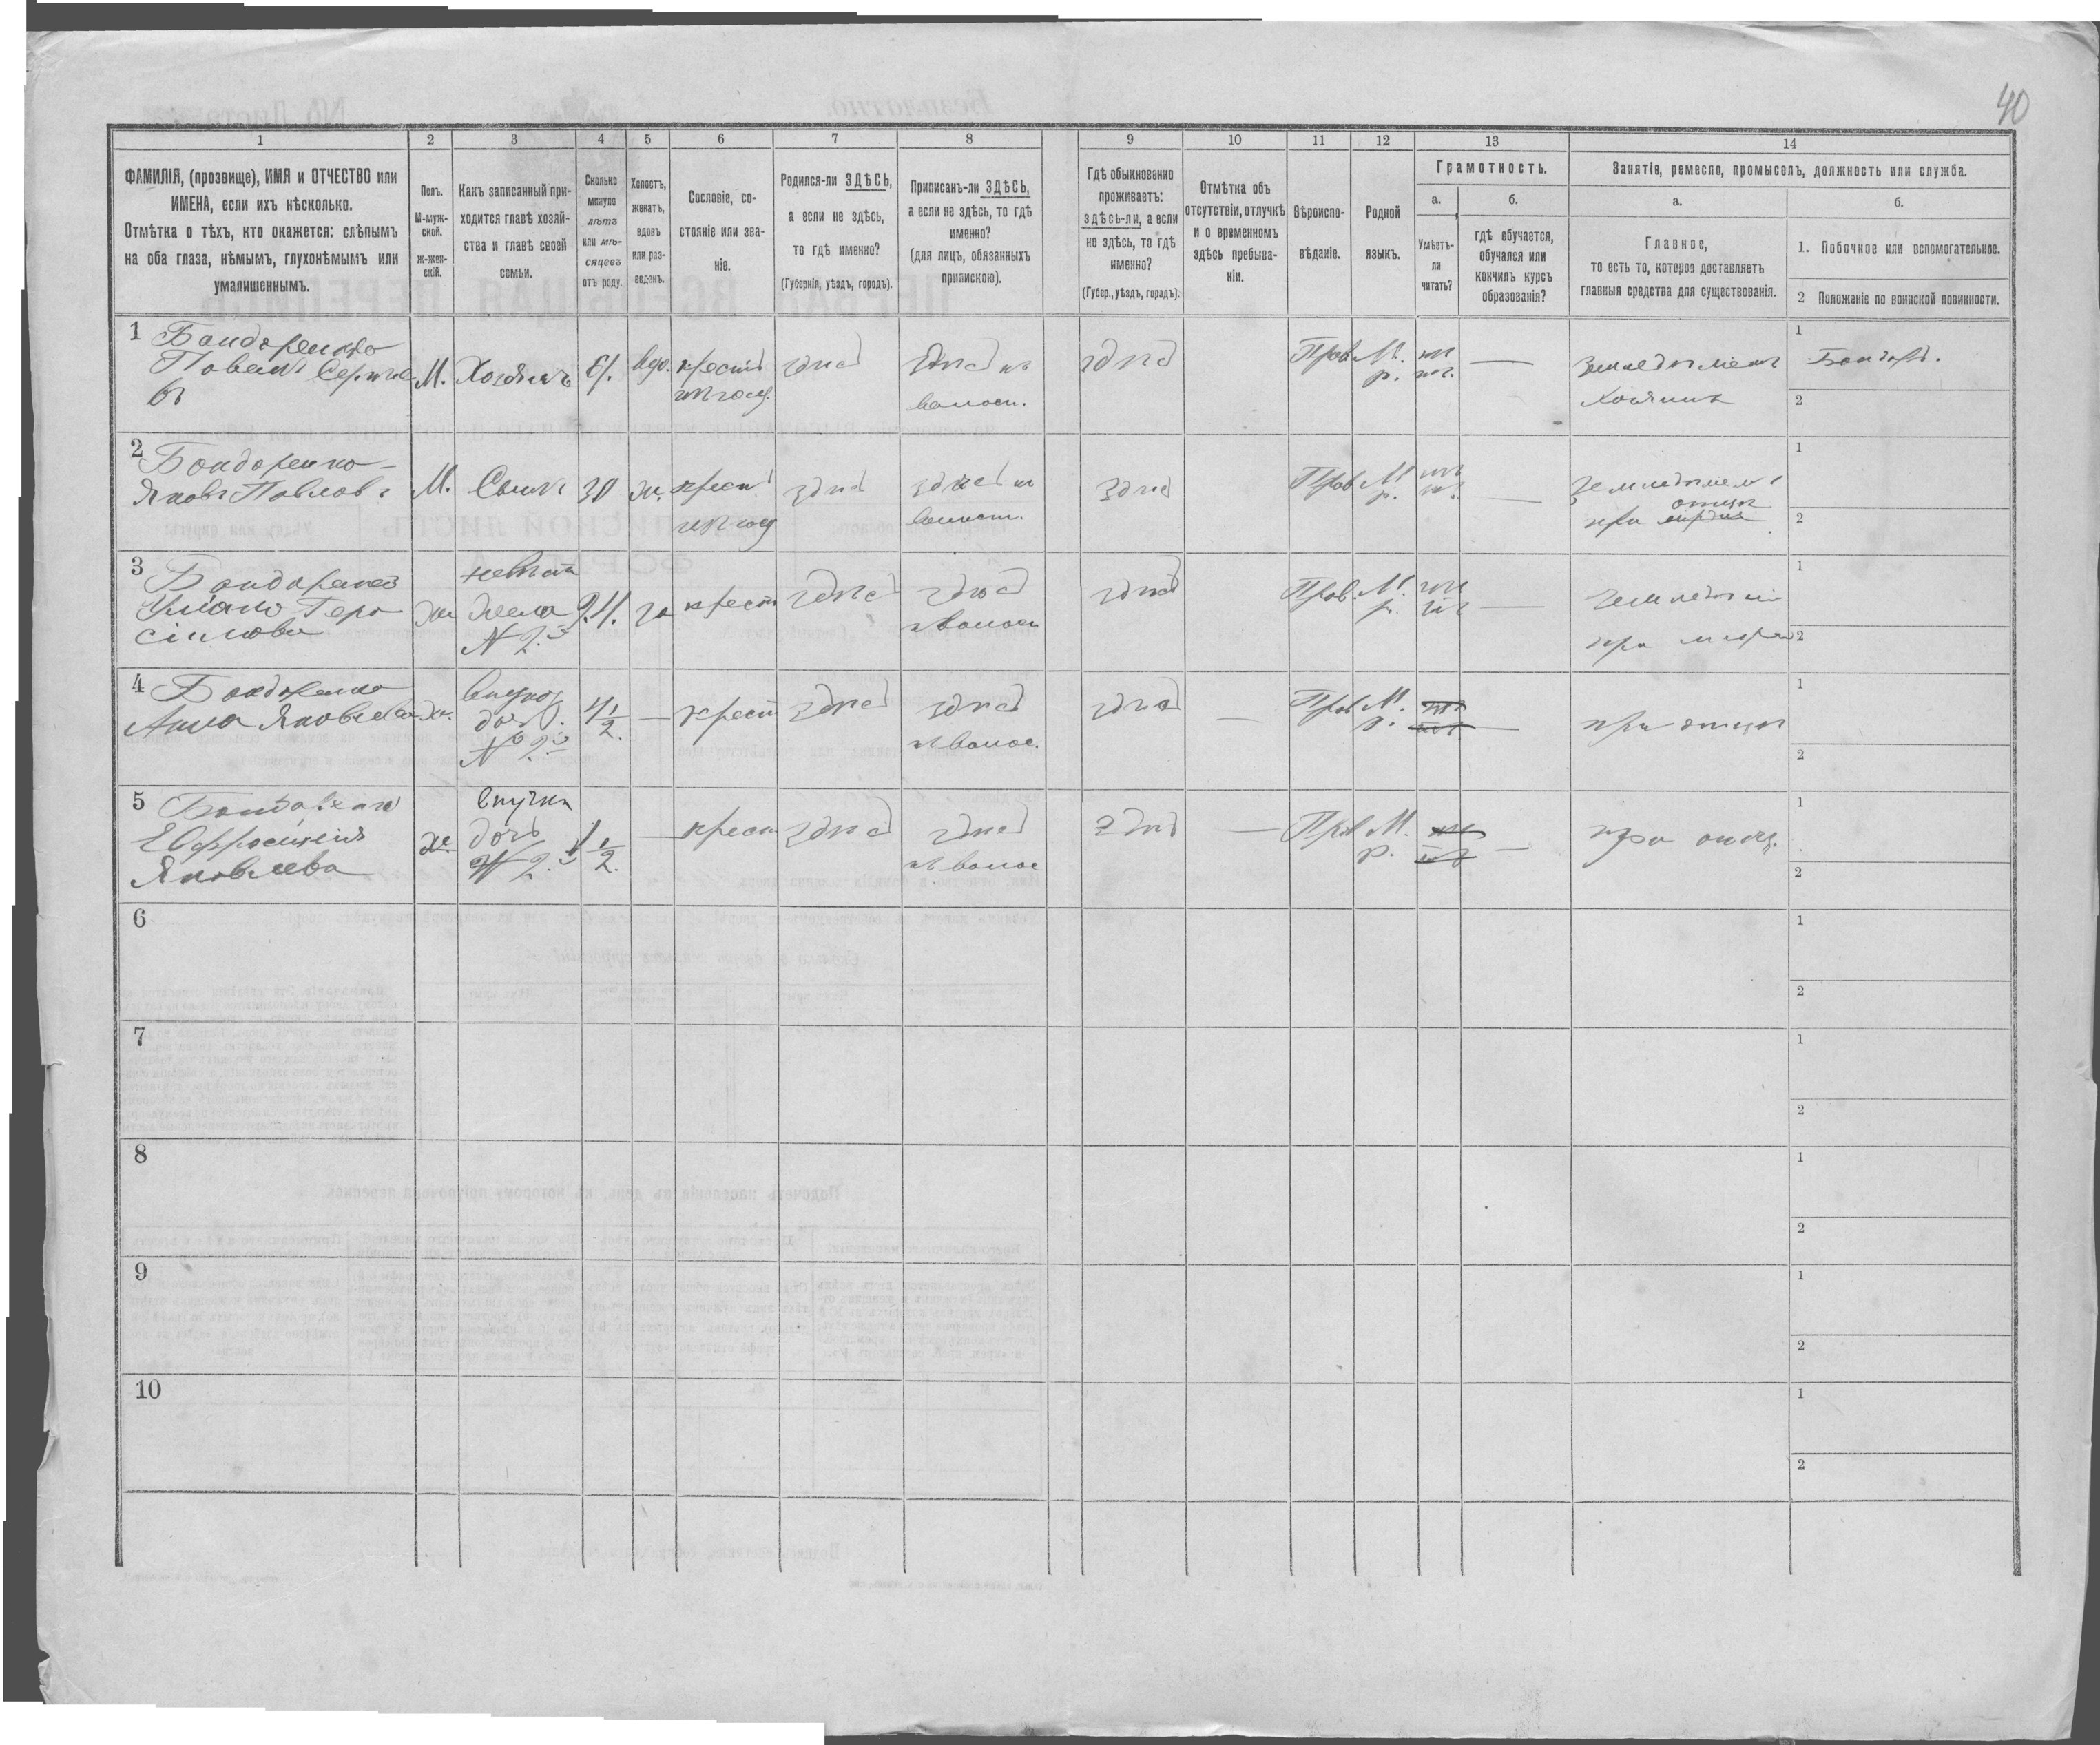 40
1
2
3
4
5
6
7
8
9
10
11
12
13
14
ФАМИЛІЯ, (прозвище), ИМЯ и ОТЧЕСТВО или
ИМЕНА, если ихъ нѣсколько.
Отмѣтка о тѣхъ, кто окажется: слѣпымъ
на оба глаза, нѣмымъ, глухонѣмымъ или
умалишеннымъ.
Полъ.
М-муж-
ской.
Ж-жен-
скій.
Какъ записанный при-
ходится главѣ хозяй-
ства и главѣ своей
семьи.
Сколько
минуло
лѣтъ
или мѣ-
сяцевъ
отъ роду.
Холостъ,
женатъ,
вдовъ
или раз-
веденъ.
Сословіе, со-
стояніе или зва-
ніе.
Родился-ли ЗДѢСЬ,
а если не здѣсь,
то гдѣ именно?
(Губернія, уѣздъ, городъ).
Приписанъ-ли ЗДѢСЬ,
а если не здѣсь, то гдѣ
именно?
(для лицъ, обязанныхъ
припискою).
Гдѣ обыкновенно
проживаетъ:
здѣсь-ли, а если
не здѣсь, то гдѣ
именно?
(Губер., уѣздъ, городъ).
Отмѣтка объ
отсутствіи, отлучкѣ
и о временномъ
здѣсь пребыва-
ніи.
Вѣроиспо-
вѣданіе.
Родной
языкъ.
Грамотность.
а.
Умѣетъ-
ли
читать?
б.
гдѣ обучается,
обучался или
кончилъ курсъ
образованія?
Занятіе, ремесло, промыселъ, должность или служба.
а.
Главное,
то есть то, которое доставляетъ
главныя средства для существованія.
б.
1. Побочное или вспомогательное.
2 Положеніе по воинской повинности.
1
Бондоренко
Павелъ Сергѣев
въ
М.
Хозяинъ
вдо.
крест
здѣсь
здѣсь къ
волост.
здѣсь
Прав
М.
р.
земледѣлецъ
Хозяинъ
1
Бондарь.
2
2
Бондоренко
Яковъ Повловъ
М.
Сынъ
30
ж.
крест
здѣсь
здѣсь къ
волост.
здѣсь
Прав
М
р.
земледѣлецъ
при отцѣ
1
2
3
Бондоренко
Уліана Гера
сімова
ж
невѣстк
жена
№ 2.
за
крест
здѣсь
здѣсь
къ волост
здѣсь
Прав.
М.
р.
земледѣліе
при мужѣ
1
2
4
Бондоренко
Анна Яковлева
ж.
внучка
доч.
№ 2
крест
здѣсь
здѣсь
къ волос.
здѣсь
Прав
М.
р.
при отцѣ
1
2
5
Бондоренко
Евфросинія
Яковлева
ж
внучка
дочь
№ 2.
1 1/2.
крест
здѣсь
здѣсь
къ волос
здѣсь
Прав
М.
р.
при отцѣ.
1
2
6
1
2
7
1
2
8
1
2
9
1
2
10
1
2